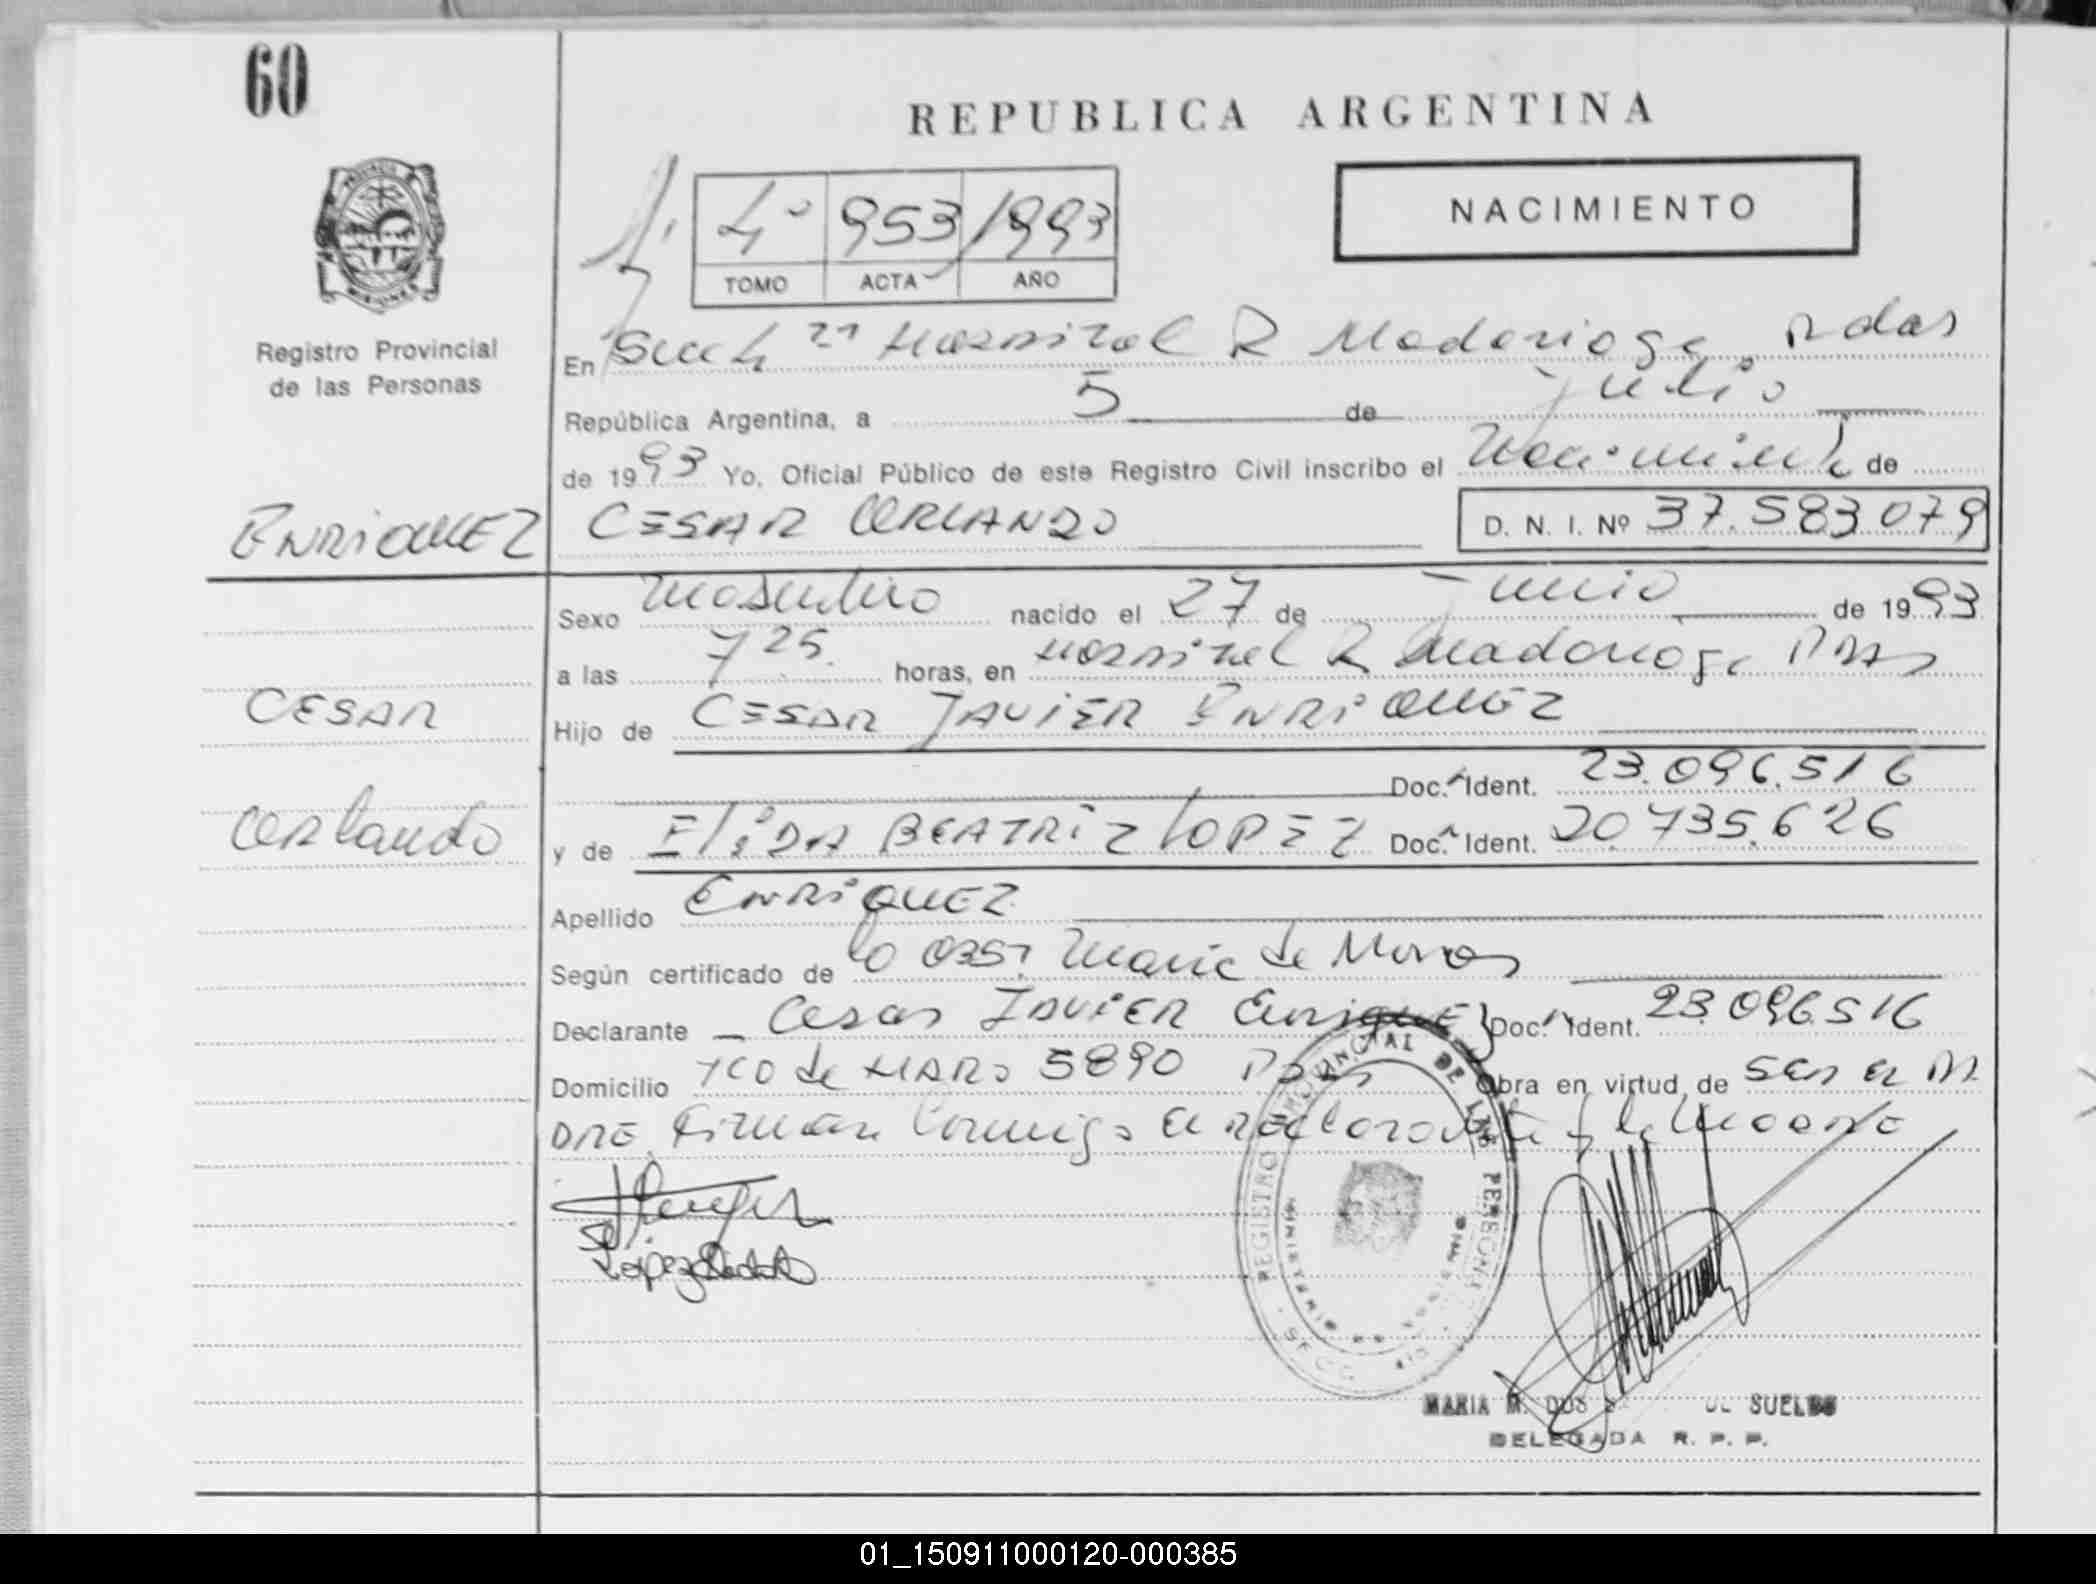 60
REPUBLICA ARGENTINA
NACIMIENTO
4º 953 1993
TOMO ACTA AÑO
Registro Provincial
de las Personas
En Hospital R Madariaga, Pdas
República Argentina, a 5 de Julio
de 1993 Yo, Oficial Público de este Registro Civil inscribo el Nacimiento de
ENRIQUEZ CESAR ORLANDO D. N. I. Nº 37.583079
Sexo masculino nacido el 27 de Junio de 1993
a las 7 25. horas, en Hospital R Madariaga Pdas
CESAR
Hijo de CESAR JAVIER ENRIQUEZ
Doc. Ident. 23.096.516
Orlando
y de ElIDA BEATRIZ LOPEZ Doc. Ident. 20.735.626
Apellido ENRIQUEZ
Según certificado de la Obst. Maria de
Declarante Cesar JAVIER Enriquez Doc. Ident. 23.096.516
Domicilio de HARO 5890 Pdas Obra en virtud de ser el PA
DRE Firman Conmigo el Declarante y la Madre
REGISTRO PROVINCIAL DE LAS PERSONAS
MINISTERIO DE GOBIERNO
MARIA M. DOS DE SUELDO
DELEGADA R. P. P.
01_150911000120-000385